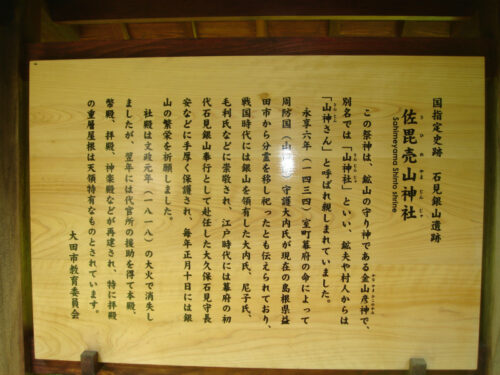 国指定史跡　石見銀山遺跡
さひめやまじんじゃ
佐毘売山神社
Sahimeyama Shinto shrine
この祭神は、鉱山の守り神である金山彦神で、
別名では「山神社」といい、鉱夫や村人からは
「山神さん」と呼ばれ親しまれていました。
永享六年（一四三四）室町幕府の命によって
周防国（山口県）守護大内氏が現在の島根県益
田市から分霊を移し祀ったとも伝えられており、
戦国時代には銀山を領有した大内氏、尼子氏、
毛利氏などに崇敬され、江戸時代には幕府の初
代石見銀山奉行として赴任した大久保石見守長
安などに手厚く保護され、毎年正月十日には銀
山の繁栄を祈願しました。
社殿は文政元年（一八一八）の大火で消失し
ましたが、翌年には代官所の援助を得て本殿、
幣殿、拝殿、神楽殿などが再建され、特に拝殿
の重層屋根は天領特有なものとされています。
大田市教育委員会